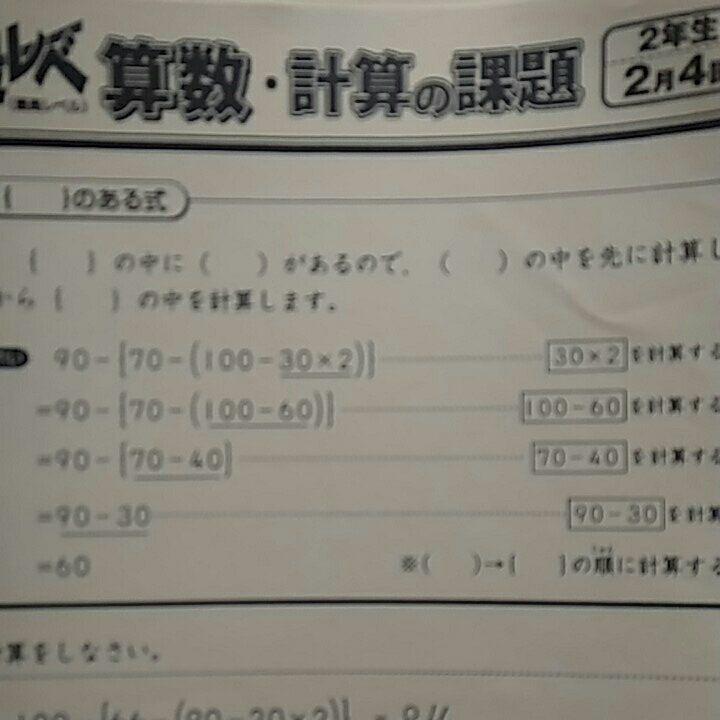 レベ
算数・計算の課題
2年生
2月4
{ }のある式
{ } の中に ( ) があるので, ( ) の中を先に計算し
から { } の中を計算します。
90-{70-(100-30×2)} 30×2 を計算する
=90-{70-(100-60)} 100-60 を計算する
=90-{70-40} 70-40 を計算する
=90-30 90-30 を計算
=60 ※( )→{ }の順に計算する
算をしなさい。